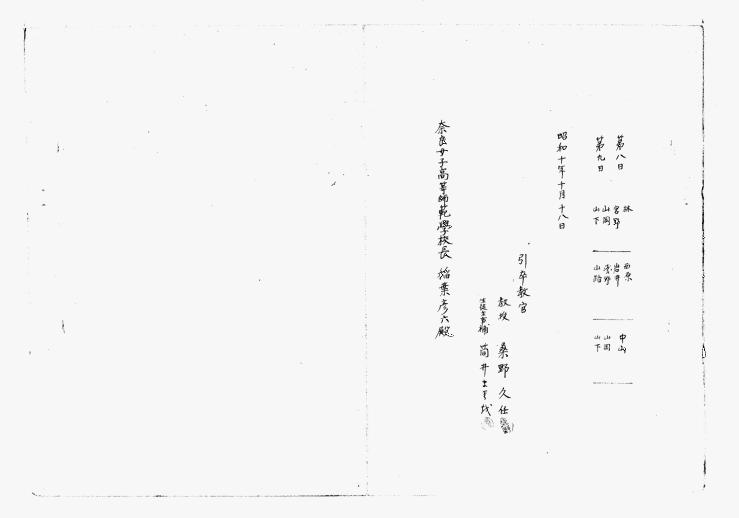 第八日 林 宮野 西原 岩井 中山
第九日 山岡 山下 山路 山田 山下
昭和十年十月十八日
引率教官
教授 桑野久任
生徒主事補 筒井
奈良女子高等師範學校長 稲葉彦六殿